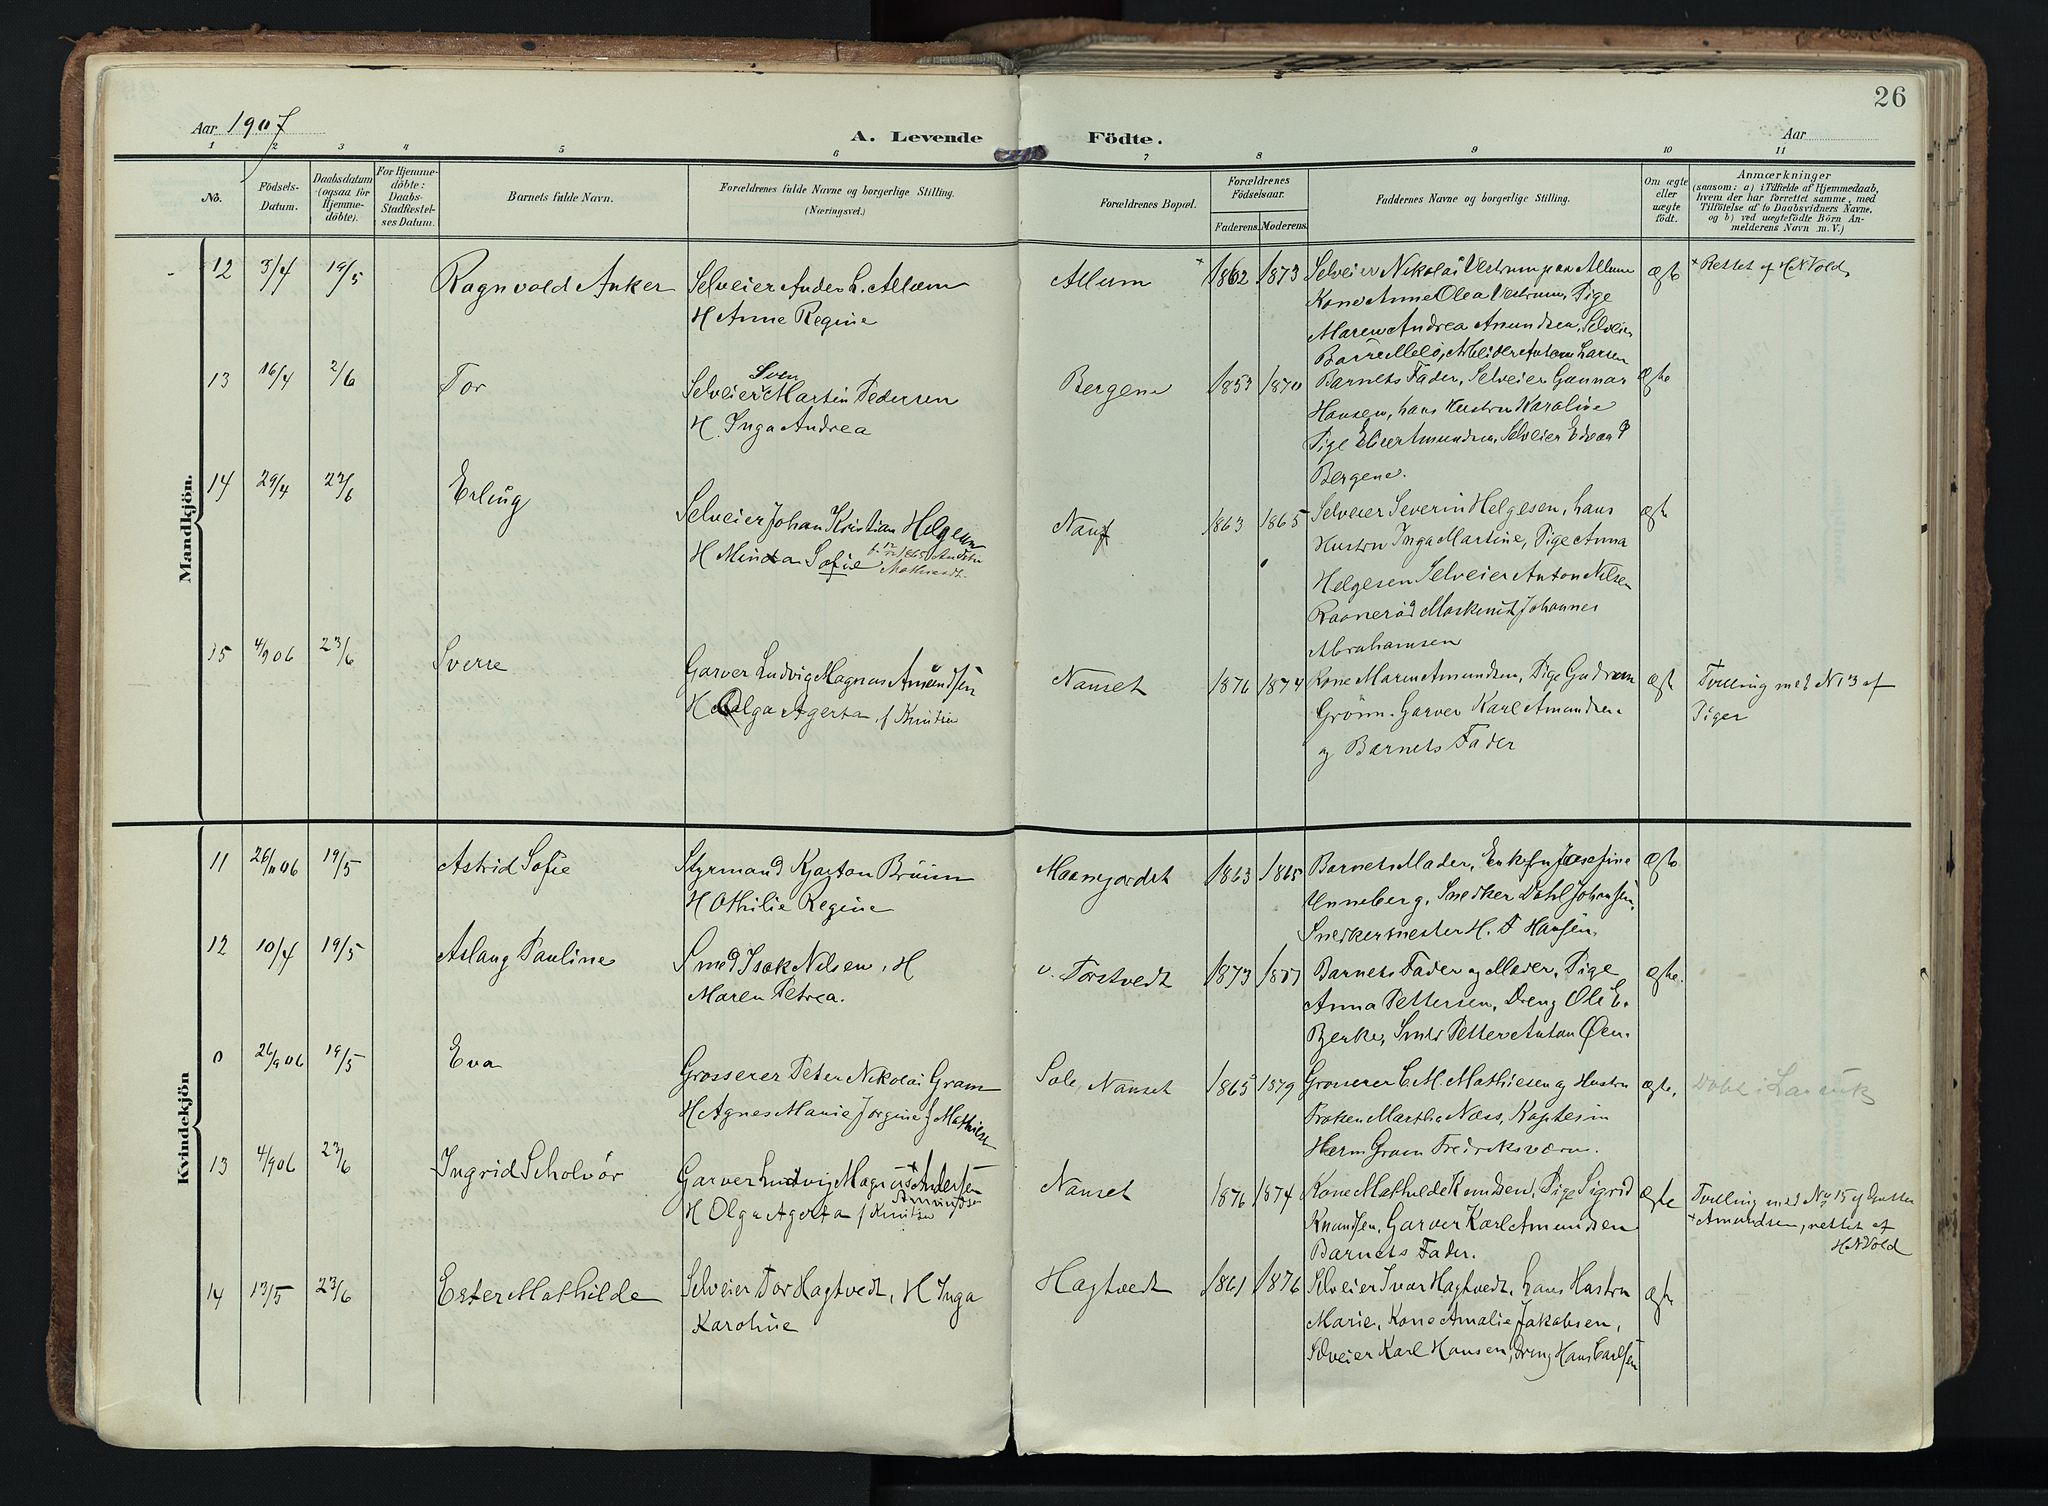 26
Aar 1907
A. Levende Födte.
Aar
1 2 3 4 5 6 7 8 9 10 11
No.
Födsels-
Datum.
Daabsdatum
(ogsaa for
Hjemme-
döbte).
For Hjemme-
döbte:
Daabs-
Stadfæstel-
ses Datum.
Barnets fulde Navn.
Forældrenes fulde Navne og borgerlige Stilling.
(Næringsvei.)
Forældrenes Bopæl.
Forældrenes
Födselsaar.
Faderens. Moderens.
Faddernes Navne og borgerlige Stilling.
Om ægte
eller
uægte
födt.
Anmærkninger
(saasom: a) i Tilfælde af Hjemmedaab,
hvem der har forrettet samme, med
Tilföielse af to Daabsvidners Navne,
og b) ved uægtefödte Börn An-
melderens Navn m. V.)
Mandkjön.
12 3/4 19/5 Ragnvold Anker
Selveier Anders L. Allum
H Anne Regine
Allum + 1862 1873
Selveier Nikolai Vestrum paa Allum
Kone Anne Olea Vestrum, Pige
Maren Andrea Amundsen, Selveier
Barre Melø, Arbeider Anton Larsen
ægte
+ Rettet af H N Vold
13 16/4 2/6 Tor
Sven
Selveier Martin Pedersen
H. Inga Andrea
Bergene 1853 1870
Barnets Fader, Selveier Gunnar
Hansen, hans Hustru Karoline
Pige Elise Amundsen, Selveier Edvar P
Bergene.
ægte
14 29/4 23/6 Erling
Selveier Johan Kristian Helgesen
H Minda Sofie
Nauf 1863 1865
Selveier Severin Helgesen, hans
Hustru Inga Martine, Pige Anna
Helgesen Selveier Anton Nilsen
Raanerød Maskinist Johannes
Abrahamsen
ægte
15 4/9 06 23/6 Sverre
Garver Ludvig Magnus Amundsen
H Olga Agerta f Knutsen
Nanset 1876 1874
Kone Maren Amundsen, Pige Gudrun
Grönn. Garver Karl Amundsen
og Barnets Fader
ægte
Tvilling med N 13 af
Piger
Kvindekjön
11 26/11 06 19/5 Astrid Sofie
Styrmand Kapton Bruun
H Othilie Regine
Maanejordet 1863 1865
Barnets Moder, Enkefru Josefine
Unneberg, Snedker Dahl Johansen,
Snedkermester H. F Hansen.
ægte
12 10/4 19/5 Aslaug Pauline
Smed Isak Nilsen, H
Maren Petrea.
v. Torstvedt 1873 1877
Barnets Fader og Moder, Pige
Anna Pettersen, Dreng Ole E.
Bjerke, Smed Petter Anton Øen.
ægte.
0 26/9 06 19/5 Eva
Grosserer Peter Nikolai Gram
H Agnes Marie Jörgine f Mathiesen
Sole, Nanset 1865 1879
Grosserer C. M. Mathiesen og Hustru
Frøken Martha Næss, Kaptein
Herm Gram Fredriksværn.
ægte.
Døbt i Larvik
13 4/9 06 23/6 Ingrid Scholvör
Garver Ludvig Magnus + Andersen
Amundsen
H Olga Agerta f Knutsen
Nanset 1876 1874
Kone Mathilde Knudsen, Pige Sigrid
Knudsen, Garver Karl Amundsen
Barnets Fader.
ægte
Tvilling med No 15 af Gutter
+ Amundsen, rettet af
H N Vold
14 13/5 23/6 Ester Mathilde
Selveier Tor Hagtvedt, H Inga
Karoline
Hagtvedt 1861 1876
Selveier Ivar Hagtvedt, hans Hustru
Marie, Kone Amalie Jakobsen,
Selveier Karl Hansen, Dreng Hans Carlsen
ægte